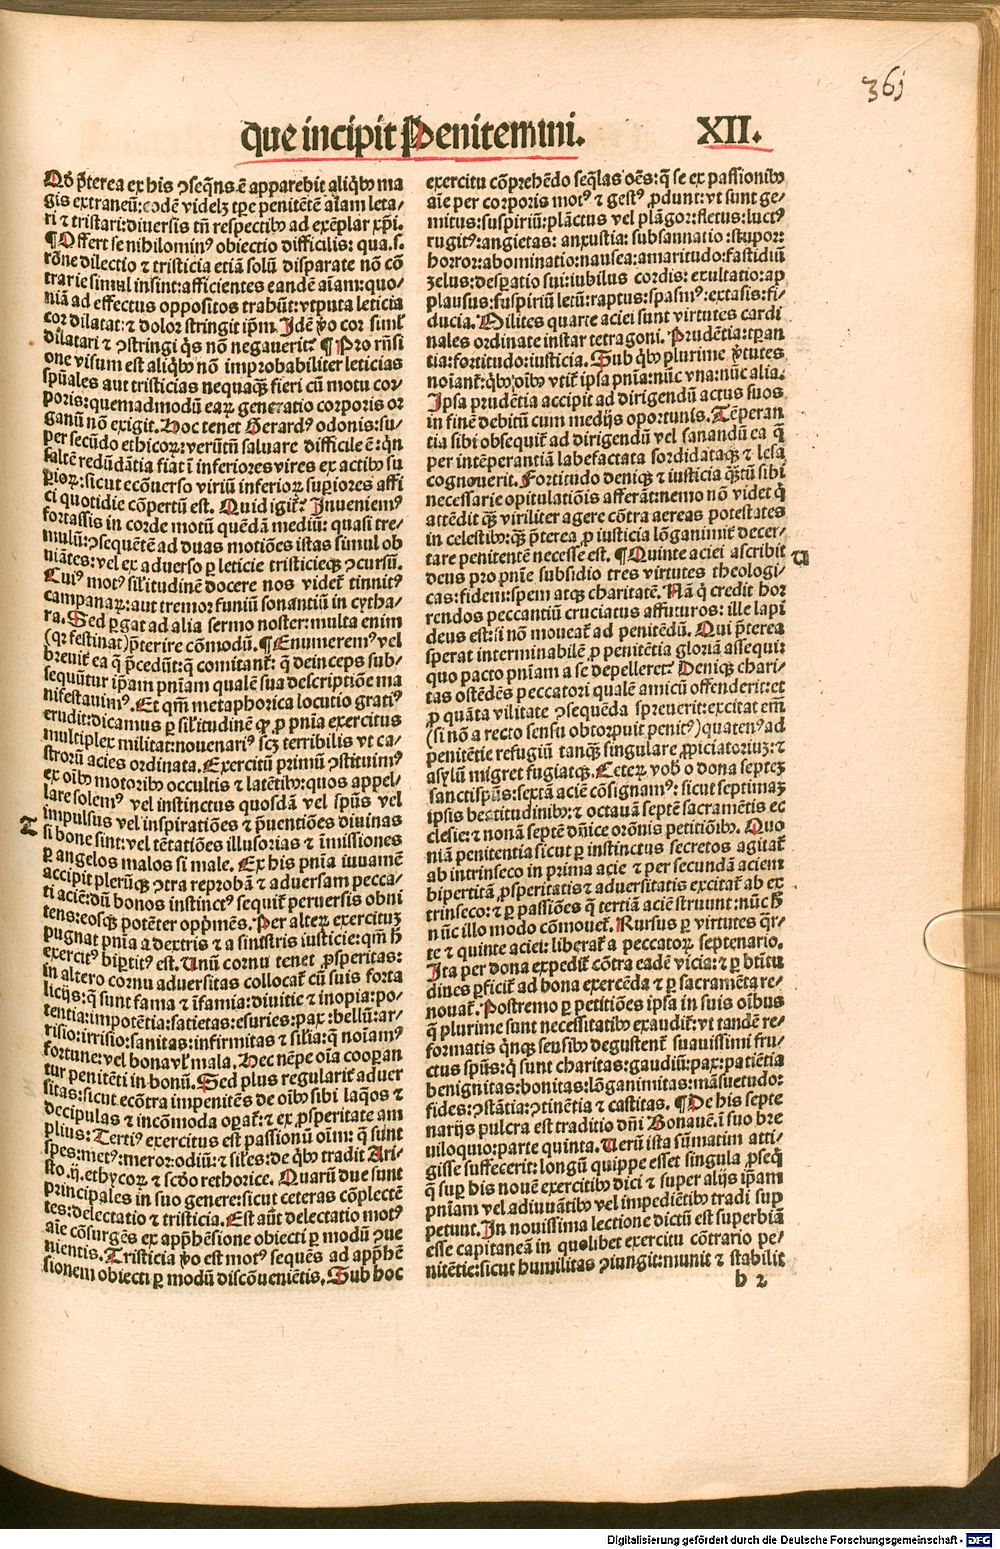 36j
que incipit Penitemini. XII.
Qď p̄terea ex his ɔseq̄ns ē apparebit aliq̇b᷒ ma
gis extraneū: eodē videlꝫ tp̄e penitētē aīam leta/
ri ⁊ tristari: diuersis tn̄ respectib᷒ ad exēplar xp̄i.
¶ Offert se nihilomin᷒ obiectio difficilis: qua. s.
rōne dilectio ⁊ tristicia etiā solū disparate nō cō
trarie simul insint: afficientes eandē aīam: quo/
niā ad effectus oppositos trahūt: vtputa leticia
cor dilatat: ⁊ dolor stringit ip̄m. Idē v̓o cor siml̓
dilatari ⁊ ɔstringi q̇s nō negauerit? ¶ Pro rn̄si
one visum est aliq̇b᷒ nō improbabiliter leticias
spūales aut tristicias nequaq̄ꝫ fieri cū motu cor/
poris: quemadmodū eaꝝ generatio corporis or
ganū nō exigit. Hoc tenet Gerard᷒ odonis: su/
per secūdo ethicoꝝ: verūtn̄ saluare difficile ē: q̇n
saltē redūdātia fiat ī inferiores vires ex actib᷒ su
ꝑioꝝ: sicut ecōuerso viriū inferioꝝ suꝑiores affi
ci quotidie cōpertū est. Quid igit̄? Inueniem᷒
fortassis in corde motū quēdā mediū: quasi tre/
mulū: ɔsequētē ad duas motiōes istas simul ob
uiātes: vel ex aduerso ꝑ leticie tristicieqꝫ ɔcursū.
Cui᷒ mot᷒ sil̓itudinē docere nos videt̄ tinnit᷒
campanaꝝ: aut tremor funiū sonantiū in cytha/
ra. Sed ꝑgat ad alia sermo noster: multa enim
(qꝛ festinat) p̄terire cōmodū. ¶ Enumerem᷒ vel
breuit̄ ea q̄ p̄cedūt: q̄ comitant̄: q̄ deinceps sub/
sequūtur ip̄am pn̄iam qualē sua descriptiōe ma
nifestauim᷒. Et qm̄ metaphorica locutio grati᷒
erudit: dicamus ꝑ sil̓itudinē ꝙ ꝓ pn̄ia exercitus
multiplex militat: nouenari᷒ scꝫ terribilis vt ca/
stroꝝ acies ordinata. Exercitū primū ɔstituim᷒
ex oīb᷒ motorib᷒ occultis ⁊ latētib᷒: quos appel/
lare solem᷒ vel instinctus quosdā vel spūs vel
T impulsus vel inspiratiōes ⁊ p̄uentiōes diuinas
si bone sint: vel tētatiōes illusorias ⁊ īmissiones
ꝑ angelos malos si male. Ex his pn̄ia iuuamē
accipit pleruqꝫ ɔtra reprobā ⁊ aduersam pecca/
ti aciē: dū bonos instinct᷒ sequit̄ peruersis obni
tens: eosqꝫ potēter opp̄mēs. Per alteꝝ exercitū
pugnat pn̄ia a dextris ⁊ a sinistris iusticie: qm̄ h̄
exercit᷒ biꝑtit᷒ est. Unū cornu tenet ꝓsperitas:
in altero cornu aduersitas collocat̄ cū suis forta
licijs: q̄ sunt fama ⁊ īfamia: diuitie ⁊ inopia: po/
tentia: impotētia: satietas: esuries: pax: bellū: ar/
risio: irrisio: sanitas: infirmitas ⁊ sil̓ia: q̄ noīam᷒
fortune: vel bona vl̓ mala. Hec nēpe oīa cooꝑan
tur penitēti in bonū. Sed plus regularit̄ aduer
sitas: sicut ecōtra impenitēs de oīb᷒ sibi laq̄os ⁊
decipulas ⁊ incōmoda oꝑat̄: ⁊ ex ꝓsperitate am
plius: Terti᷒ exercitus est passionū oīm: q̄ sunt
spes: met᷒: meror: odiū: ⁊ sil̓es: de q̇b᷒ tradit Ari/
sto. ij. ethycoꝝ ⁊ scd̓o rethorice. Quarū due sunt
principales in suo genere: sicut ceteras cōplectē
tes: delectatio ⁊ tristicia. Est aūt delectatio mot᷒
aīe cōsurgēs ex app̄hēsione obiecti ꝑ modū ɔue
nientis. Tristicia v̓o est mot᷒ sequēs ad app̄hē
sionem obiecti ꝑ modū discōuenientis. Sub hoc
exercitu cōprehēdo seq̄las oēs: q̄ se ex passionib᷒
aīe per corporis mot᷒ ⁊ gest᷒ ꝓdunt: vt sunt ge/
mitus: suspiriū: plāctus vel plāgor: fletus: luct᷒
rugit᷒: angietas: anxustia: subsannatio: stupor:
horror: abominatio: nausea: amaritudo: fastidiū
zelus: desꝑatio sui: iubilus cordis: exultatio: ap
plausus: suspiriū letū: raptus: spasm᷒: extasis: fi/
ducia. Milites quarte aciei sunt virtutes cardi
nales ordinate instar tetragoni. Prudētia: tꝑan
tia: fortitudo: iusticia. Sub q̇b᷒ plurime v̓tutes
noīant̄: q̇b᷒ oīb᷒ vtit̄ ipsa pn̄ia: nūc vna: nūc alia.
Ipsa prudētia accipit ad dirigendū actus suos
in finē debitū cum medijs oportunis. Tēperan
tia sibi obsequit̄ ad dirigendū vel sanandū ea q̄
per intēperantiā labefactata sordidataqꝫ ⁊ lesa
cognouerit. Fortitudo deniqꝫ ⁊ iusticia q̄ꝫtū sibi
necessarie opitulatiōis afferāt: nemo nō videt q̇
attēdit q̄ꝫ viriliter agere cōtra aereas potestates
in celestib᷒: q̄ꝫ p̄terea ꝓ iusticia lōganimit̄ decer/
tare penitentē necesse est. ¶ Quinte aciei ascribit U
deus pro pn̄ie subsidio tres virtutes theologi/
cas: fidem: spem atqꝫ charitatē. Nā q̇ credit hor
rendos peccantiū cruciatus affuturos: ille lapi
deus est: si nō moueat̄ ad penitēdū. Qui p̄terea
sperat interminabilē ꝓ penitētia gloriā assequi:
quo pacto pn̄iam a se depelleret? Deniqꝫ chari/
tas ostēdēs peccatori qualē amicū offenderit: et
ꝓ quāta vilitate ɔsequēda spreuerit: excitat em̄
(si nō a recto sensu obtorpuit penit᷒) quaten᷒ ad
penitētie refugiū tanq̄ꝫ singulare ꝓpiciatoriuꝫ: ⁊
asylū migret fugiatqꝫ. Ceteꝝ vob̓ o dona septeꝫ
sanctispūs: sextā aciē cōsignam᷒: sicut septimaꝫ
ipsis beatitudinib᷒: ⁊ octauā septē sacramētis ec
clesie: ⁊ nonā septē dn̄ice orōnis petitiōib᷒. Quo
niā penitentia sicut ꝑ instinctus secretos agitat̄
ab intrinseco in prima acie ⁊ per secundā aciem
bipertitā ꝓsperitatis ⁊ aduersitatis excitat̄ ab ex
trinseco: ⁊ ꝑ passiōes q̄ tertiā aciē struunt: nūc h̄
nūc illo modo cōmouet̄. Rursus ꝑ virtutes q̄r/
te ⁊ quinte aciei: liberat̄ a peccatoꝝ septenario.
Ita per dona expedit̄ cōtra eadē vicia: ⁊ ꝑ bt̄itu
dines ꝑficit̄ ad bona exercēda ⁊ ꝑ sacramēta re/
nouat̄. Postremo ꝑ petitiōes ipsa in suis oībus
q̄ plurime sunt necessitatib᷒ exaudit̄: vt tandē re/
formatis q̇nqꝫ sensib᷒ degustent̄ suauissimi fru/
ctus spūs: q̇ sunt charitas: gaudiū: pax: patiētia
benignitas: bonitas: lōganimitas: māsuetudo:
fides: ɔstātia: ɔtinētia ⁊ castitas. ¶ De his septe
narijs pulcra est traditio dn̄i Bonauē. ī suo bre
uiloquio: parte quinta. Uerū ista sūmatim atti/
gisse suffecerit: longū quippe esset singula ꝓseq̇
q̄ suꝑ his nouē exercitib᷒ dici ⁊ super alijs ip̄am
pn̄iam vel adiuuātib᷒ vel impediētib᷒ tradi sup
petunt. In nouissima lectione dictū est superbiā
esse capitaneā in quolibet exercitu cōtrario pe/
nitētie: sicut humilitas ɔiungit: munit ⁊ stabilit
b 2
Digitalisierung gefördert durch die Deutsche Forschungsgemeinschaft - DFG